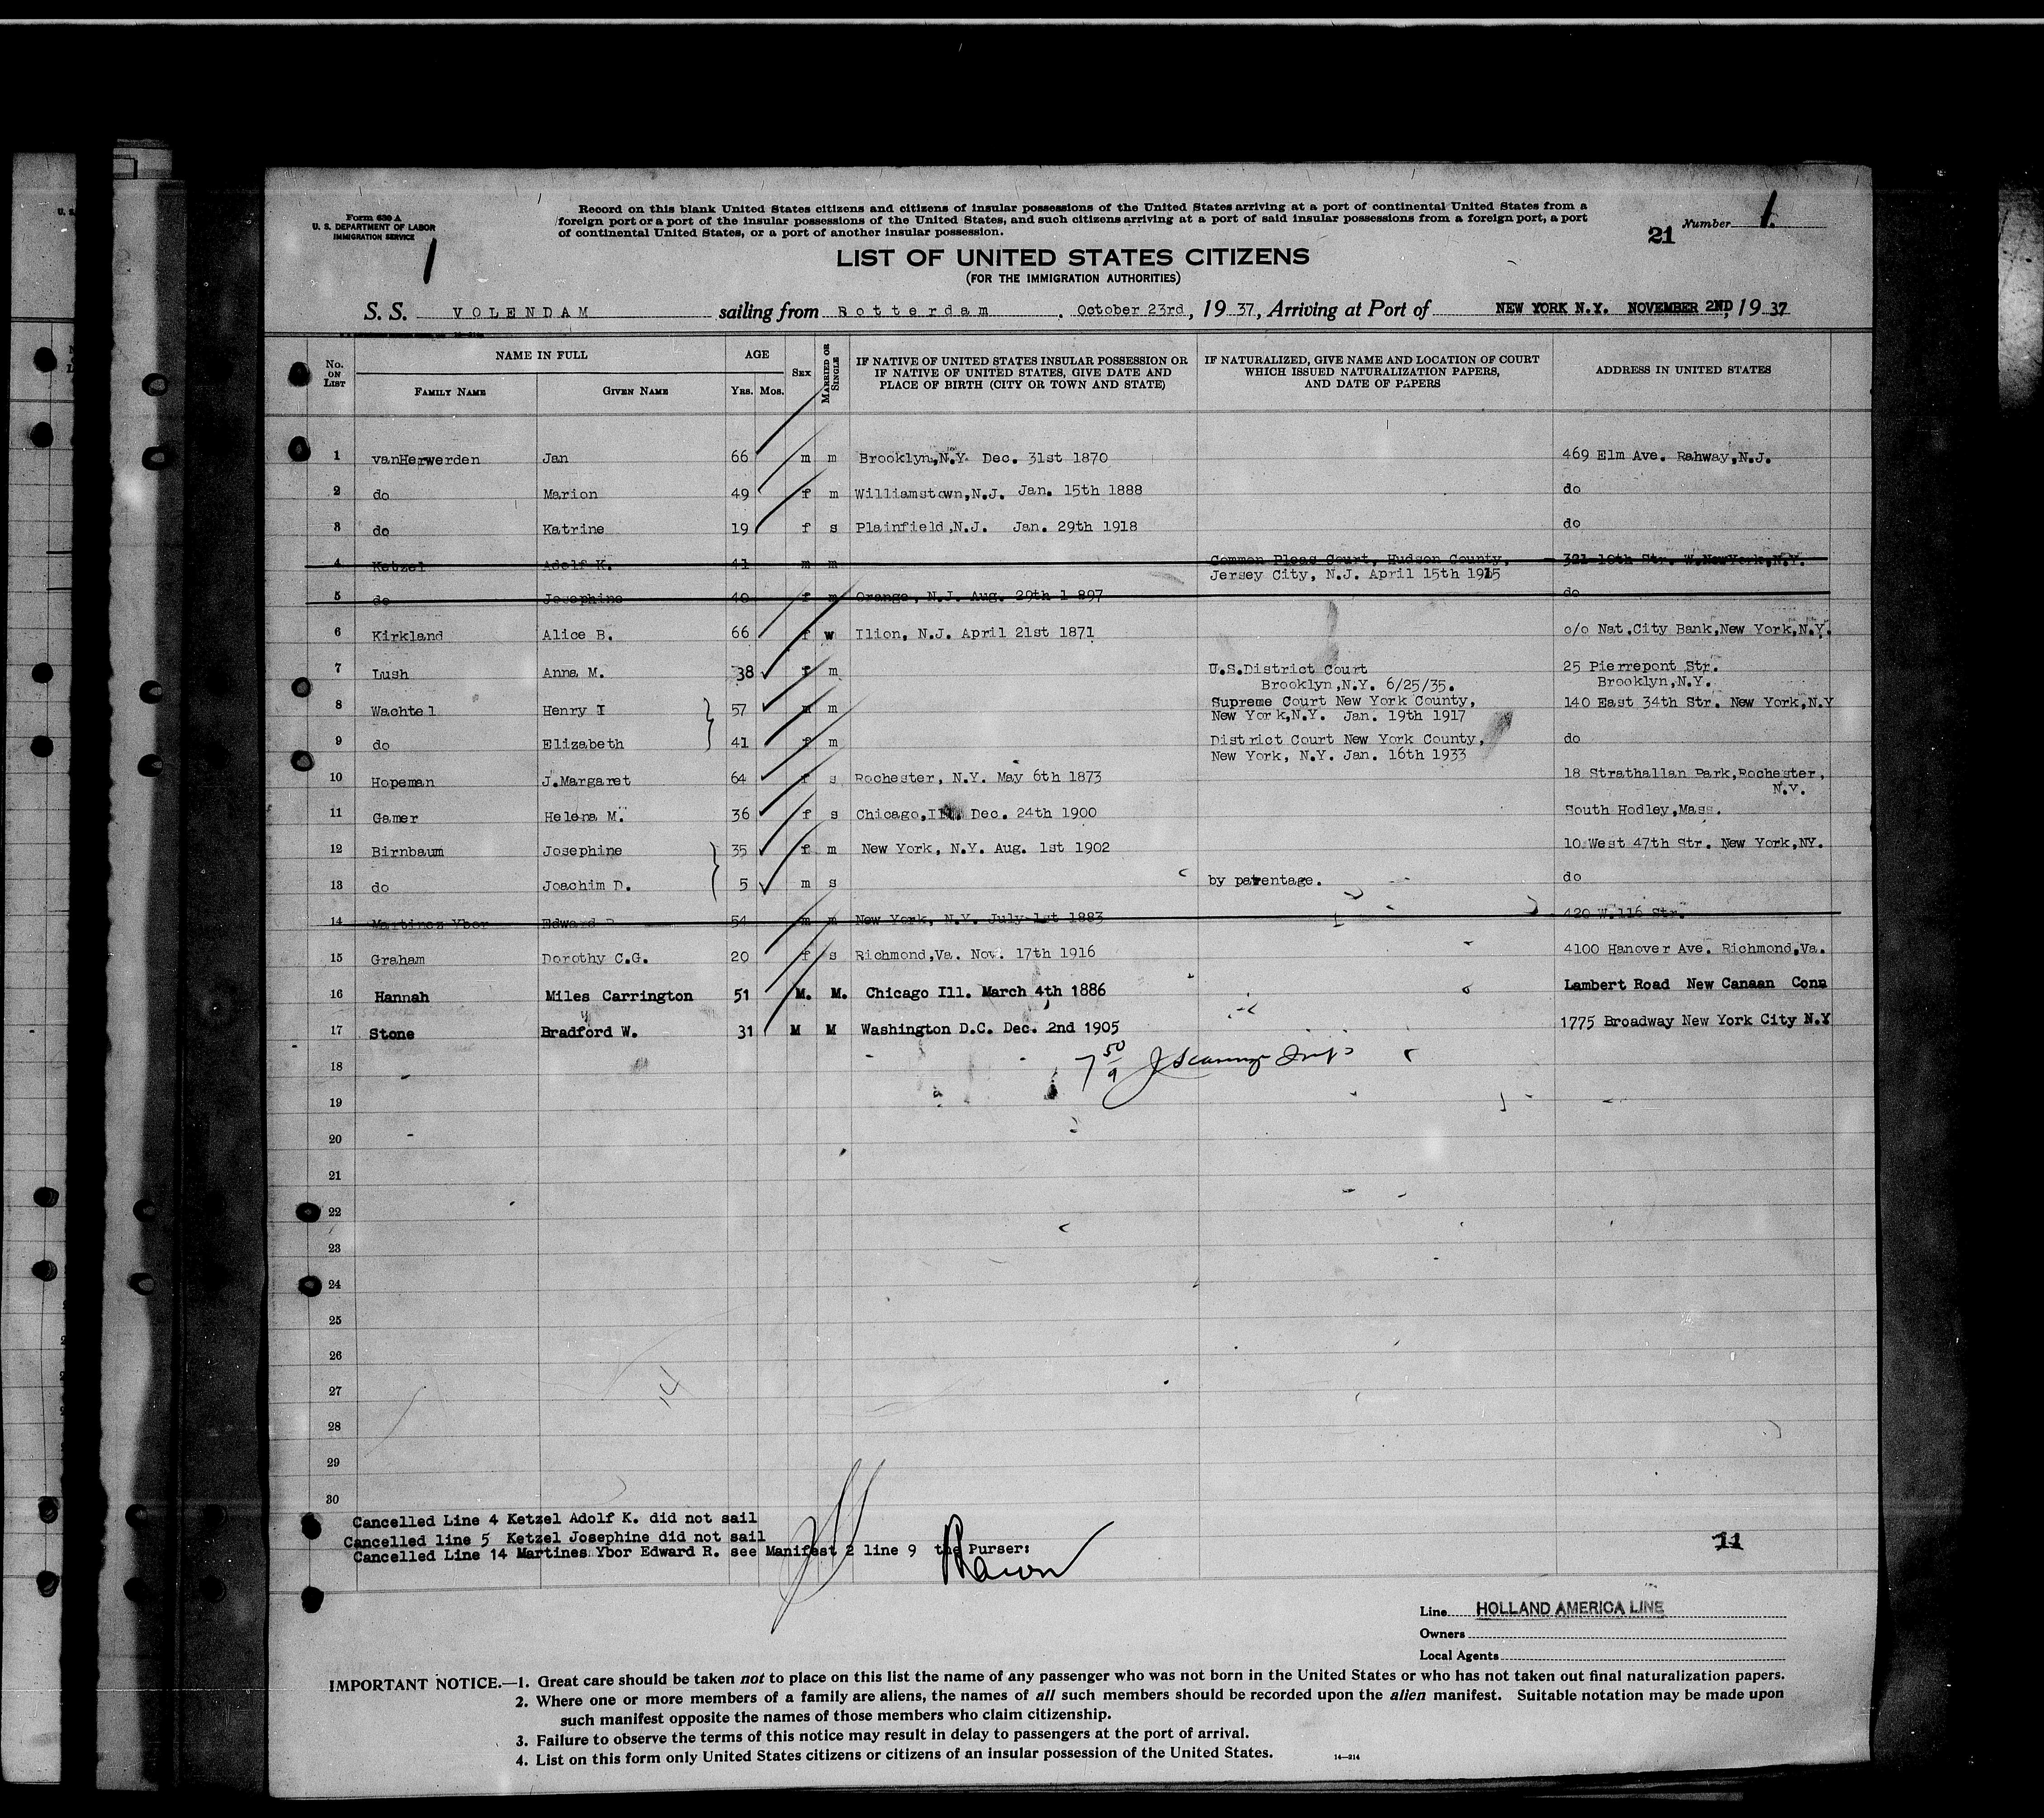 Form 630 A
U. S. DEPARTMENT OF LABOR
IMMIGRATION SERVICE
1
Record on this blank United States citizens and citizens of insular possessions of the United States arriving at a port of continental United States from a
foreign port or a port of the insular possessions of the United States, and such citizens arriving at a port of said insular possessions from a foreign port, a port
of continental United States, or a port of another insular possession.
21 Number 1.
LIST OF UNITED STATES CITIZENS
(FOR THE IMMIGRATION AUTHORITIES)
S. S. VOLENDAM sailing from Rotterdam, October 23rd, 1937, Arriving at Port of NEW YORK N.Y. NOVEMBER 2ND, 1937
No. ON LIST NAME IN FULL AGE SEX MARRIED OR SINGLE IF NATIVE OF UNITED STATES INSULAR POSSESSION OR IF NATIVE OF UNITED STATES, GIVE DATE AND PLACE OF BIRTH (CITY OR TOWN AND STATE) IF NATURALIZED, GIVE NAME AND LOCATION OF COURT WHICH ISSUED NATURALIZATION PAPERS, AND DATE OF PAPERS ADDRESS IN UNITED STATES
FAMILY NAME GIVEN NAME YRS. MOS.
1 vanHerwerden Jan 66 m m Brooklyn,N.Y. Dec. 31st 1870 469 Elm Ave. Rahway,N.J.
2 do Marion 49 f m Williamstown,N.J. Jan. 15th 1888 do
3 do Katrine 19 f s Plainfield,N.J. Jan. 29th 1918 do
4 Ketzel Adolf K. 41 m m Common Pleas Court, Hudson County, 321 10th Str. W.NewYork,N.Y.
Jersey City, N.J. April 15th 1915
5 do Josephine 40 f m Orange, N.J. Aug. 29th 1 897 do
6 Kirkland Alice B. 66 f w Ilion, N.J. April 21st 1871 c/o Nat.City Bank,New York,N.Y.
7 Lush Anna M. 38 f m U.S.District Court 25 Pierrepont Str.
Brooklyn,N.Y. 6/25/35. Brooklyn,N.Y.
8 Wachtel Henry I 57 m m Supreme Court New York County, 140 East 34th Str. New York,N.Y
New York,N.Y. Jan. 19th 1917
9 do Elizabeth 41 f m District Court New York County, do
New York, N.Y. Jan. 16th 1933
10 Hopeman J.Margaret 64 f s Rochester, N.Y. May 6th 1873 18 Strathallan Park,Rochester,
N.Y.
11 Gamer Helena M. 36 f s Chicago,Ill. Dec. 24th 1900 South Hodley,Mass.
12 Birnbaum Josephine 35 f m New York, N.Y. Aug. 1st 1902 10 West 47th Str. New York,NY.
13 do Joachim D. 5 m s by parentage. do
14 Martinez Ybor Edward R 54 m m New York, N.Y. July 1st 1883 420 W.116 Str.
15 Graham Dorothy C.G. 20 f s Richmond,Va. Nov. 17th 1916 4100 Hanover Ave. Richmond,Va.
16 Hannah Miles Carrington 51 M. M. Chicago Ill. March 4th 1886 Lambert Road New Canaan Conn
17 Stone Bradford W. 31 M M Washington D.C. Dec. 2nd 1905 1775 Broadway New York City N.Y
18
19
20
21
22
23
24
25
26
27
28
29
30
Cancelled Line 4 Ketzel Adolf K. did not sail
Cancelled line 5 Ketzel Josephine did not sail
Cancelled Line 14 Martines Ybor Edward R. see Manifest 2 line 9 the Purser:
11
Line HOLLAND AMERICA LINE
Owners
Local Agents
IMPORTANT NOTICE.—1. Great care should be taken not to place on this list the name of any passenger who was not born in the United States or who has not taken out final naturalization papers.
2. Where one or more members of a family are aliens, the names of all such members should be recorded upon the alien manifest. Suitable notation may be made upon
such manifest opposite the names of those members who claim citizenship.
3. Failure to observe the terms of this notice may result in delay to passengers at the port of arrival.
4. List on this form only United States citizens or citizens of an insular possession of the United States.
14—214